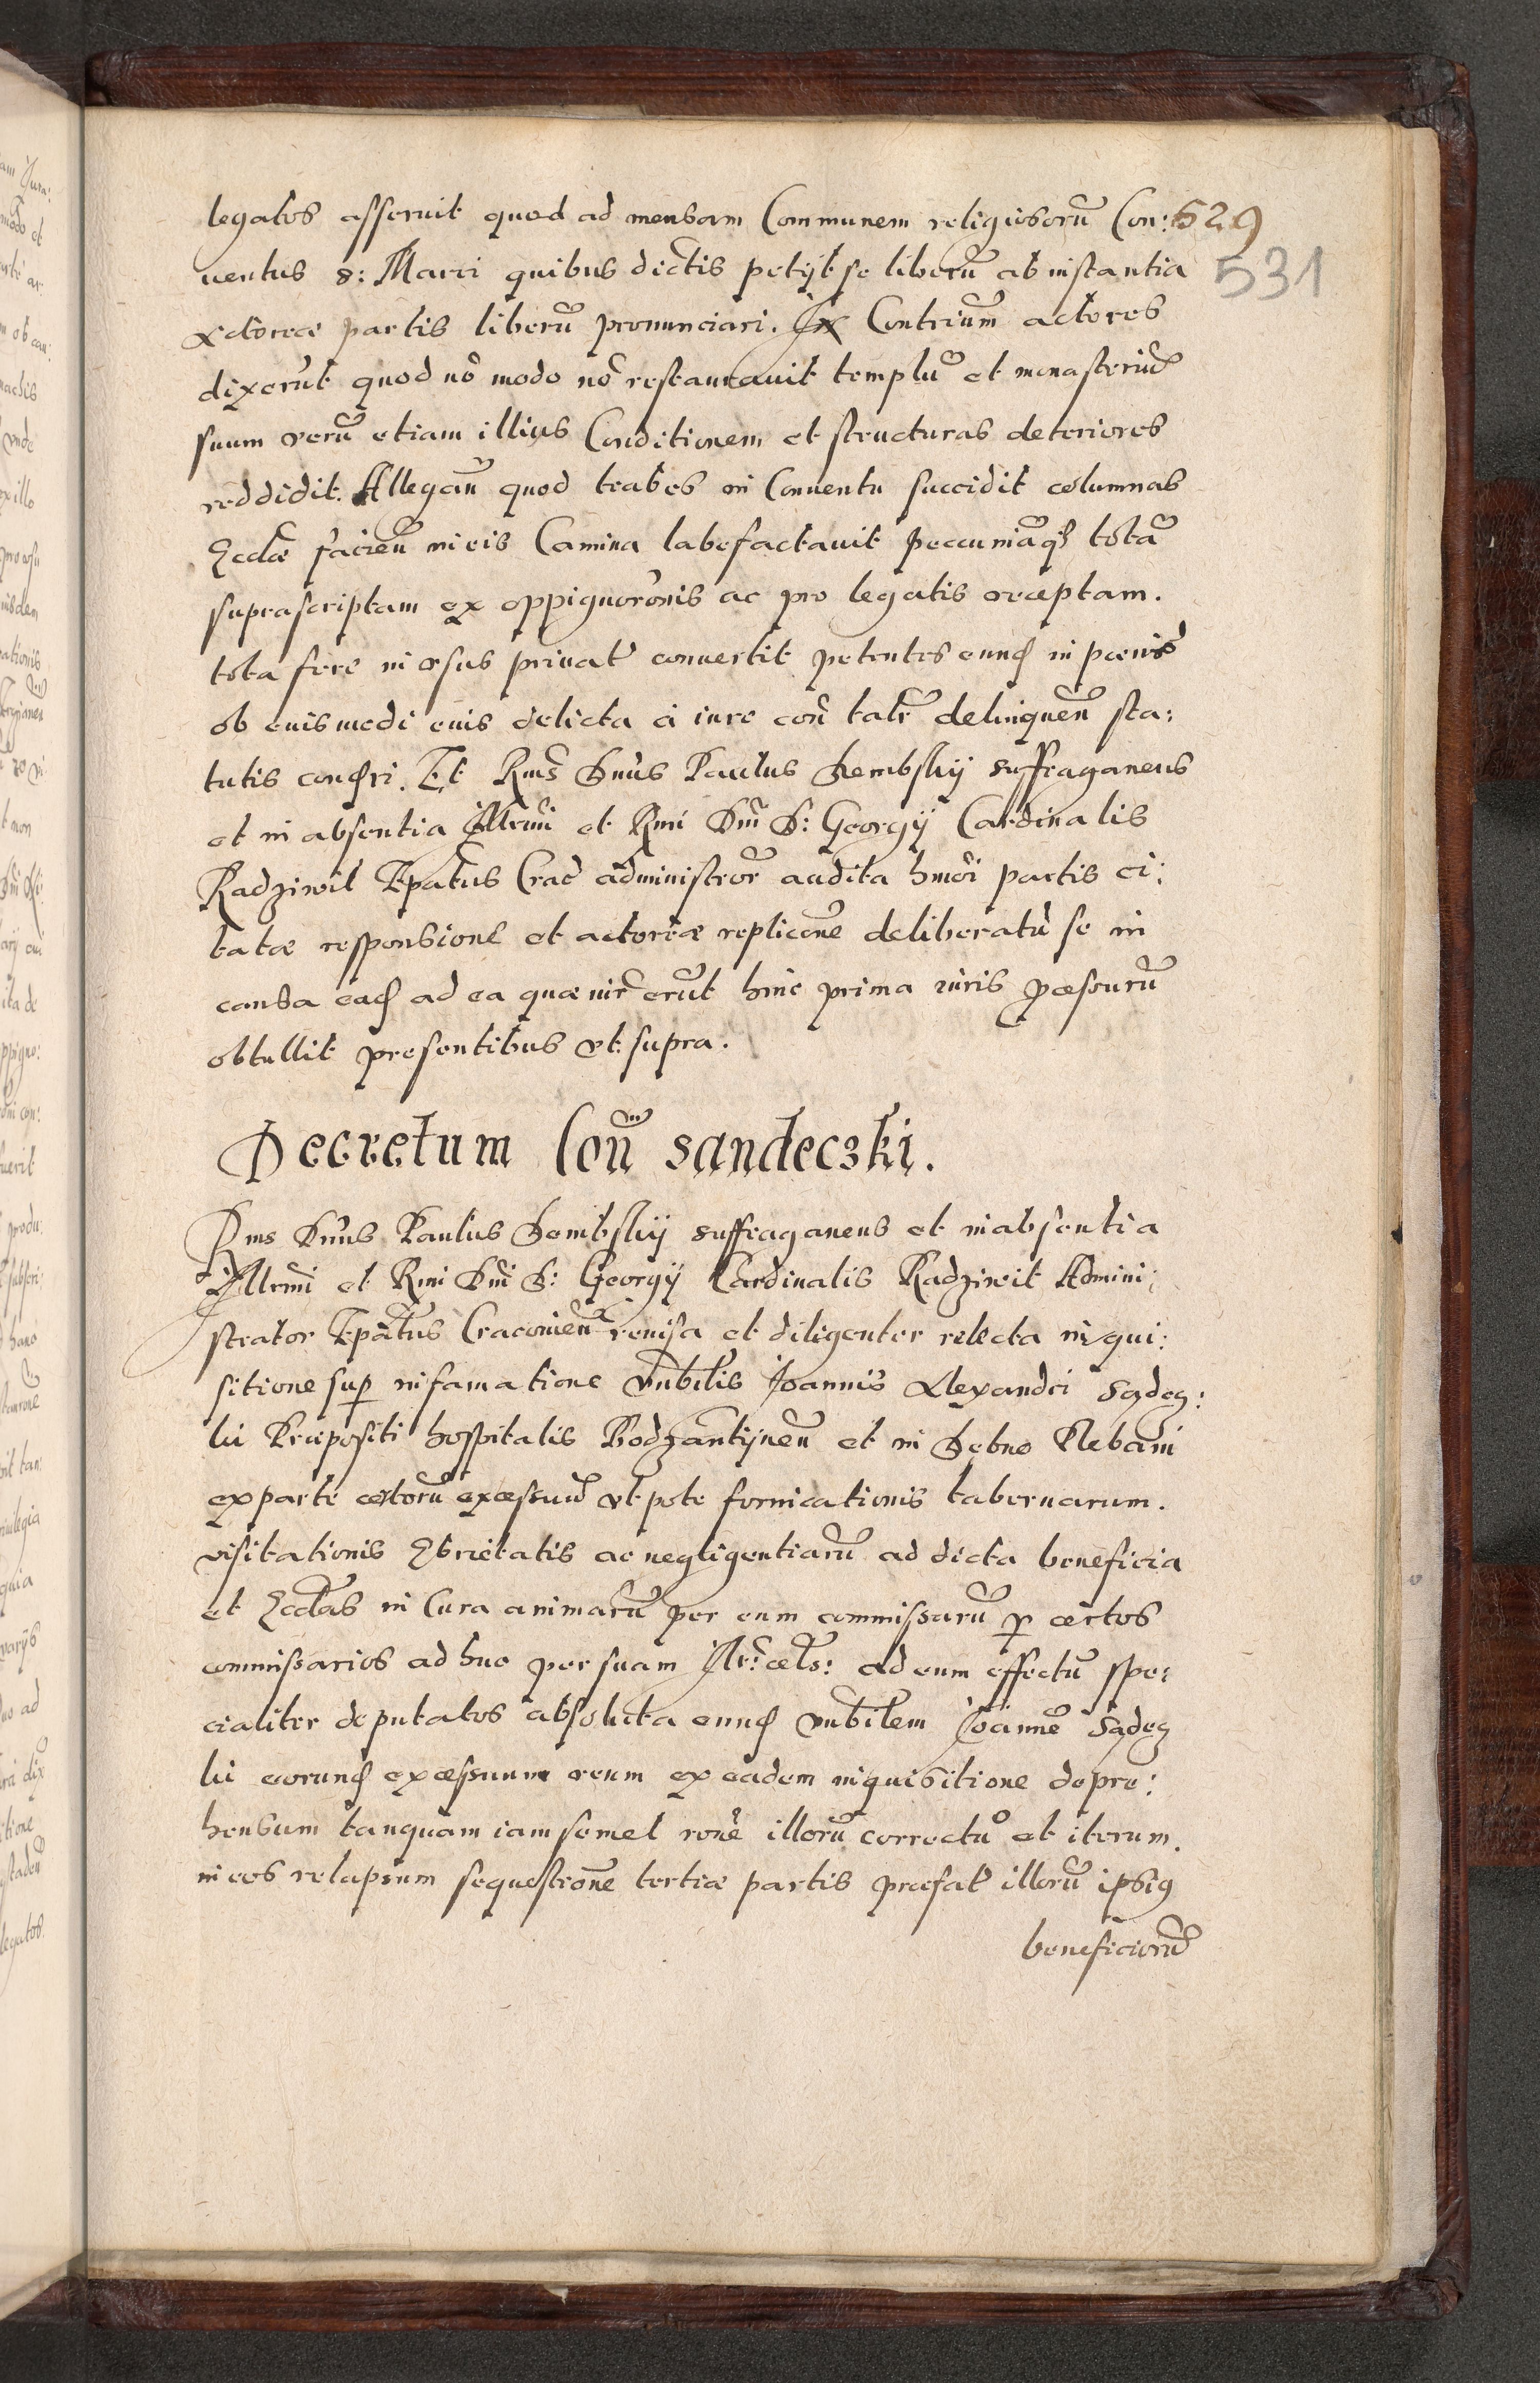 legatos asseruit quod ad mensam Communem religiosorũ Con: 529
uentus S: Marci quibus dictis petijt se liberũ ab instantia 531
actoreae partis liberũ pronunciari. Ex Contriũm actores
dixerũt quod nõ modo nõ restaurauit templũ et monasteriũ
suum verũ etiam illius Conditionem et structuras deteriores
reddidit. Allegañ quod trabes in Conuentu succidit columnas
Eccłæ facieñ in eis Camina labefactauit peccuniãqʒ totã
suprascriptam ex oppignorõnis ac pro legatis receptam.
tota fere in vsus priuat̃ conuertit petentes eundʒ in pœnis
ob euismodi euis delicta a iure coñ talr̃ delinqueñ sta:
tutis
Et Rm̃s Dñus Paulus Dembskij suffraganeus
et in absentia Illrm̃i et Rmi Dñi D: Georgij Cardinalis
Radziwil Ep̃atus Crac̃ administror̃ audita hm̃oi partis ci:
tatæ responsione et actoreæ replicõne deliberatũ se in
causa eadʒ ad ea quæ iur̃ erũt hinc prima iuris
obtullit presentibus vt supra.
Decretum Coñ Sandeczki.
Rms Dñus Paulus Dembskij suffraganeus et in absentia
Illrm̃i et Rmi Dñi D: Georgij Cardinalis Radziwil Admini:
strator Ep̃atus Cracouieñ reuisa et diligenter relecta inqui:
sitione sup̱ infamatione Vnb̃ilis Joannis Alexandri Sądecz:
ki Præpositi hospitalis Bodzantijneñ et in Debno Plebani
ex parte certorũ excessuũ vt pote fornicationis tabernarum.
visitationis Ebrietatis ac negligentiarũ ad dicta beneficia
et Eccłas in Cura animarũ per eum commissarũ p̱ certos
commissarios ad huc per suam Illr̃: cels: ad eum effectũ spe:
cialiter deputatos absoluta eundʒ Vnb̃ilem Joannẽ Sądecz
ki eorundʒ excessuum reum ex eadem inquisitione depre:
hensum tanquam iam semel rõne illorũ correctũ et iterum.
in eos relapsum sequestrõne tertiæ partis præfat̃ illorũ ipsiꝰ
beneficiorũ